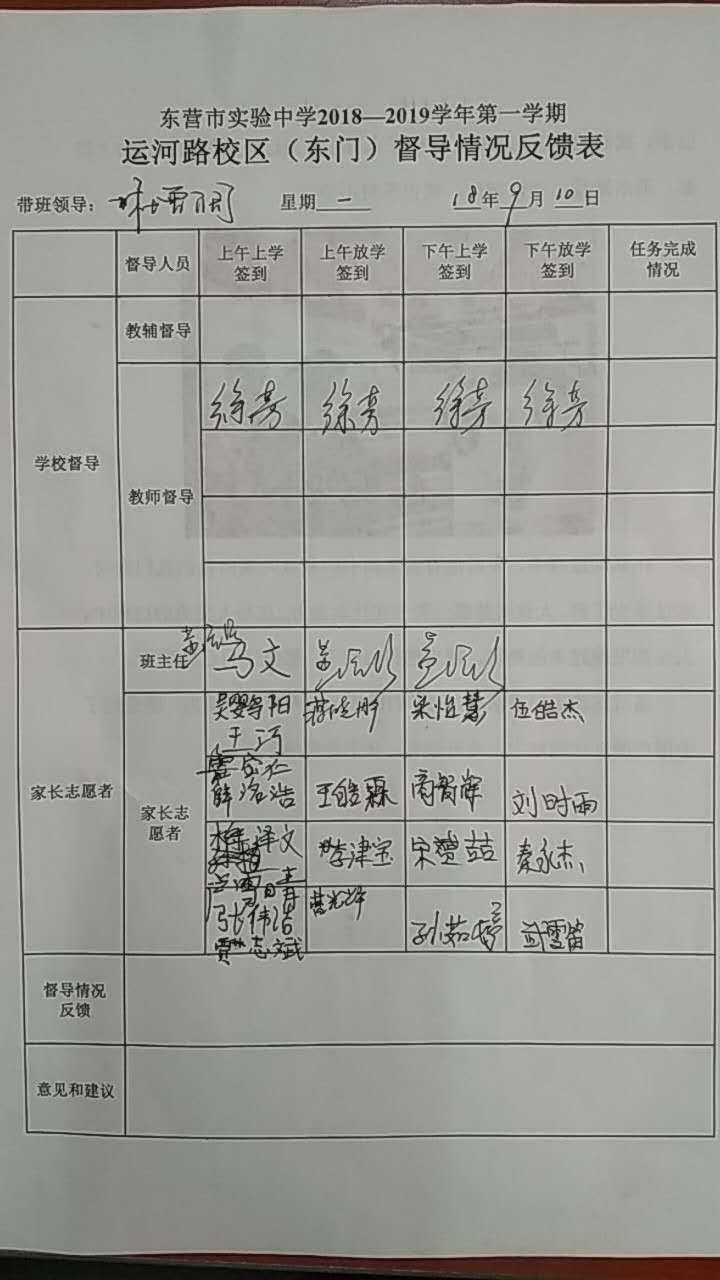 东营市实验中学2018—2019学年第一学期
运河路校区（东门）督导情况反馈表
带班领导： 星期 一 18年9月10日
督导人员 上午上学签到 上午放学签到 下午上学签到 下午放学签到 任务完成情况
学校督导
教辅督导
教师督导 徐芳 徐芳 徐芳 徐芳
家长志愿者
班主任 马文
家长志愿者
梁怡慧 伍皓杰
薛洺浩 王皓霖 商智辉 刘时雨
李津宝 宋赟喆 秦永杰
张伟浩 孙茹婷
贾志斌
督导情况反馈
意见和建议